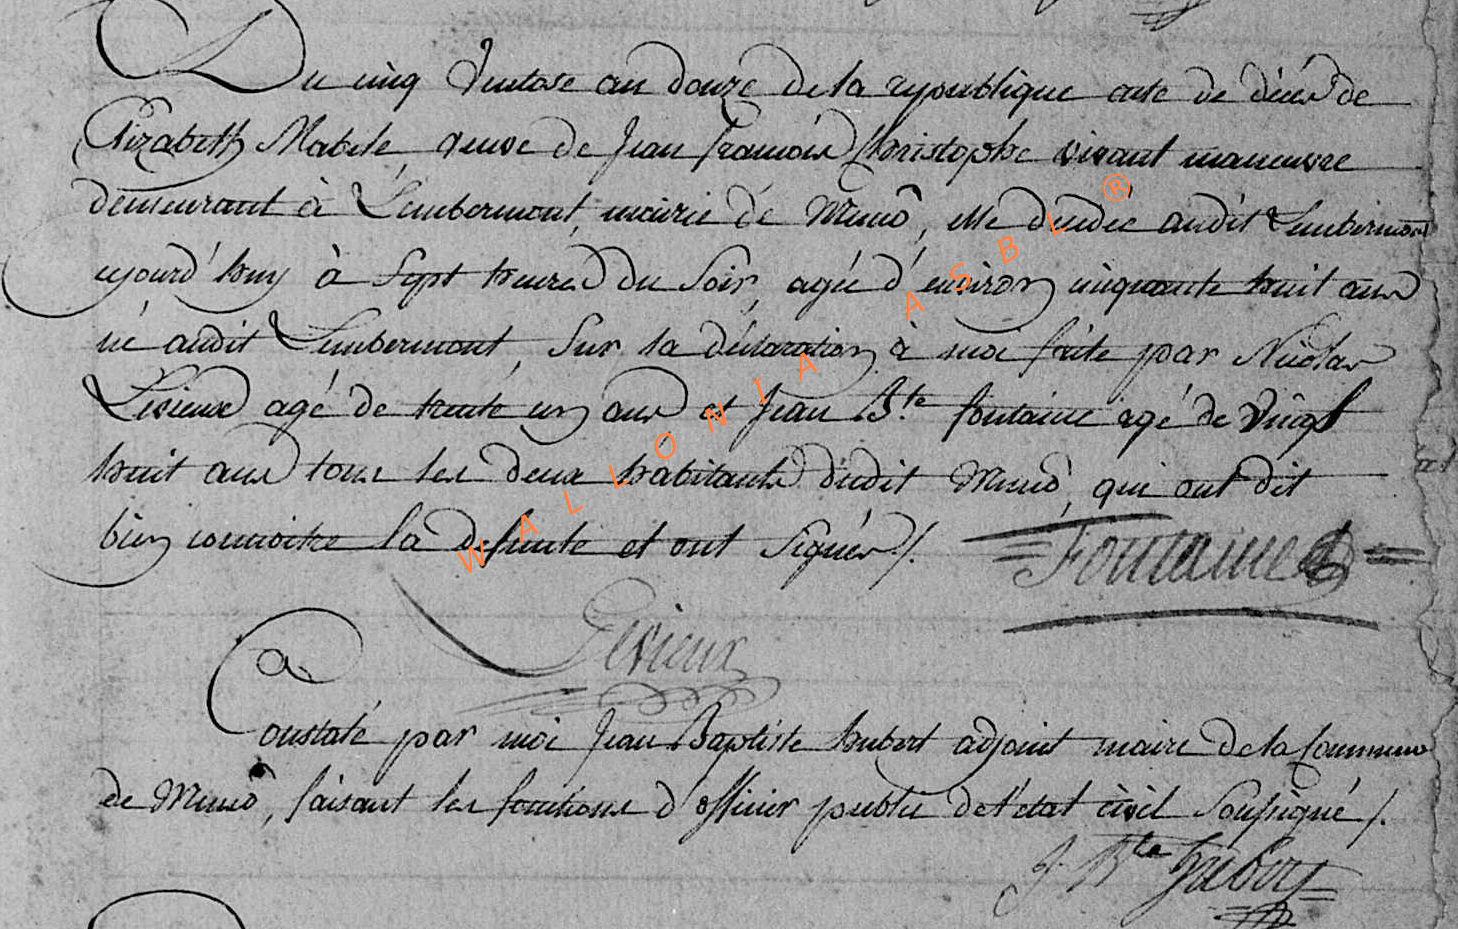 Du cinq Ventose an douze de la republique acte de décès de
Elizabeth Mabile, veuve de Jean François Christophe vivant maneuvre
demeurant à Lembermont, mairie de Munô, elle décédée audit Lembermont
aujourd'huy à Sept heures du Soir, agée d'environ cinquante huit ans
né audit Lembermont, Sur la déclaration à moi faite par Nicolas
Lesieur agé de trente un ans et Jean Bte. fontaine agé de vingt
huit ans tous les deux habitants dudit Munô, qui ont dit
bien connoitre la defunte et ont Signés /.
Fontaine
Lesieur
Constaté par moi Jean Baptiste hubert adjoint maire de la Commune
de Munô, faisant les fonctions d'officier public de l'état civil Soussigné /.
J. Bte hubert
WALLONIA ASBL ®